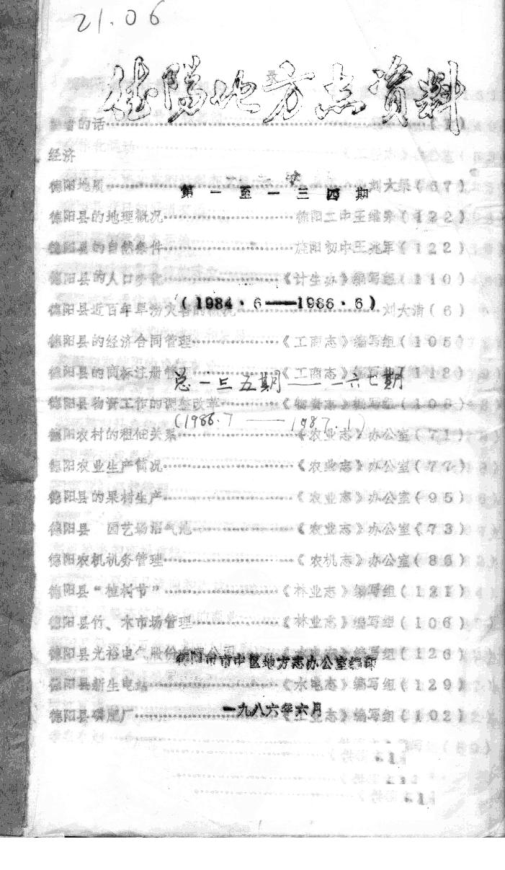 21.06
德阳地方志资料
者的话(1)
经济
德阳地质刘大荣(67)
第一至一三四期
德阳县的地理概况德阳二中王维秀(122)
德阳县的自然条件德阳初中王光军(122)
德阳县的人口《计生办》编写组(110)
(1984·6——1986·6)
德阳县近百年旱涝灾害的概况刘大清(6)
德阳县的经济合同管理《工商志》编写组(105)
德阳县的商标注册《工商志》编写组(118)
总一三五期——一六七期
德阳县物资工作的调整改革《物资志》编写组(106)
(1986.7——1987.1)
德阳农村的租佃关系《农业志》办公室(71)
德阳农业生产情况《农业志》办公室(77)
德阳县的果树生产《农业志》办公室(95)
德阳县 园艺场沼气池《农业志》办公室(73)
德阳农机机务管理《农机志》办公室(86)
德阳县“植树节”《林业志》编写组(121)
德阳县竹、木市场管理《林业志》编写组(106)
德阳县光裕电气股份有限公司《水电志》编写组(126)
德阳市市中区地方志办公室编印
德阳县新生电站《水电志》编写组(129)
德阳县磷肥厂《工业志》编写组(102)
一九八六年六月